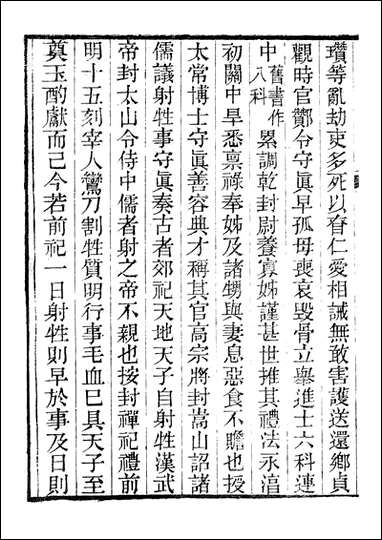 瓚等亂劫吏多死以脊仁愛相誡無敢害護送還鄉貞
觀時官酇令守眞早孤母喪哀毀骨立舉進士六科連
中舊書作八科累調乾封尉養寡姊謹甚世推其禮法永湻
初關中旱悉禀祿奉姊及諸甥與妻息惡食不贍也授
太常博士守眞善容典才稱其官高宗將封嵩山詔諸
儒議射牲事守眞奏古者郊祀天地天子自射牲漢武
帝封太山令侍中儒者射之帝不親也按封禪祀禮前
明十五刻宰人鸞刀割牲質明行事毛血已具天子至
奠玉酌獻而已今若前祀一日射牲則早於事及日則